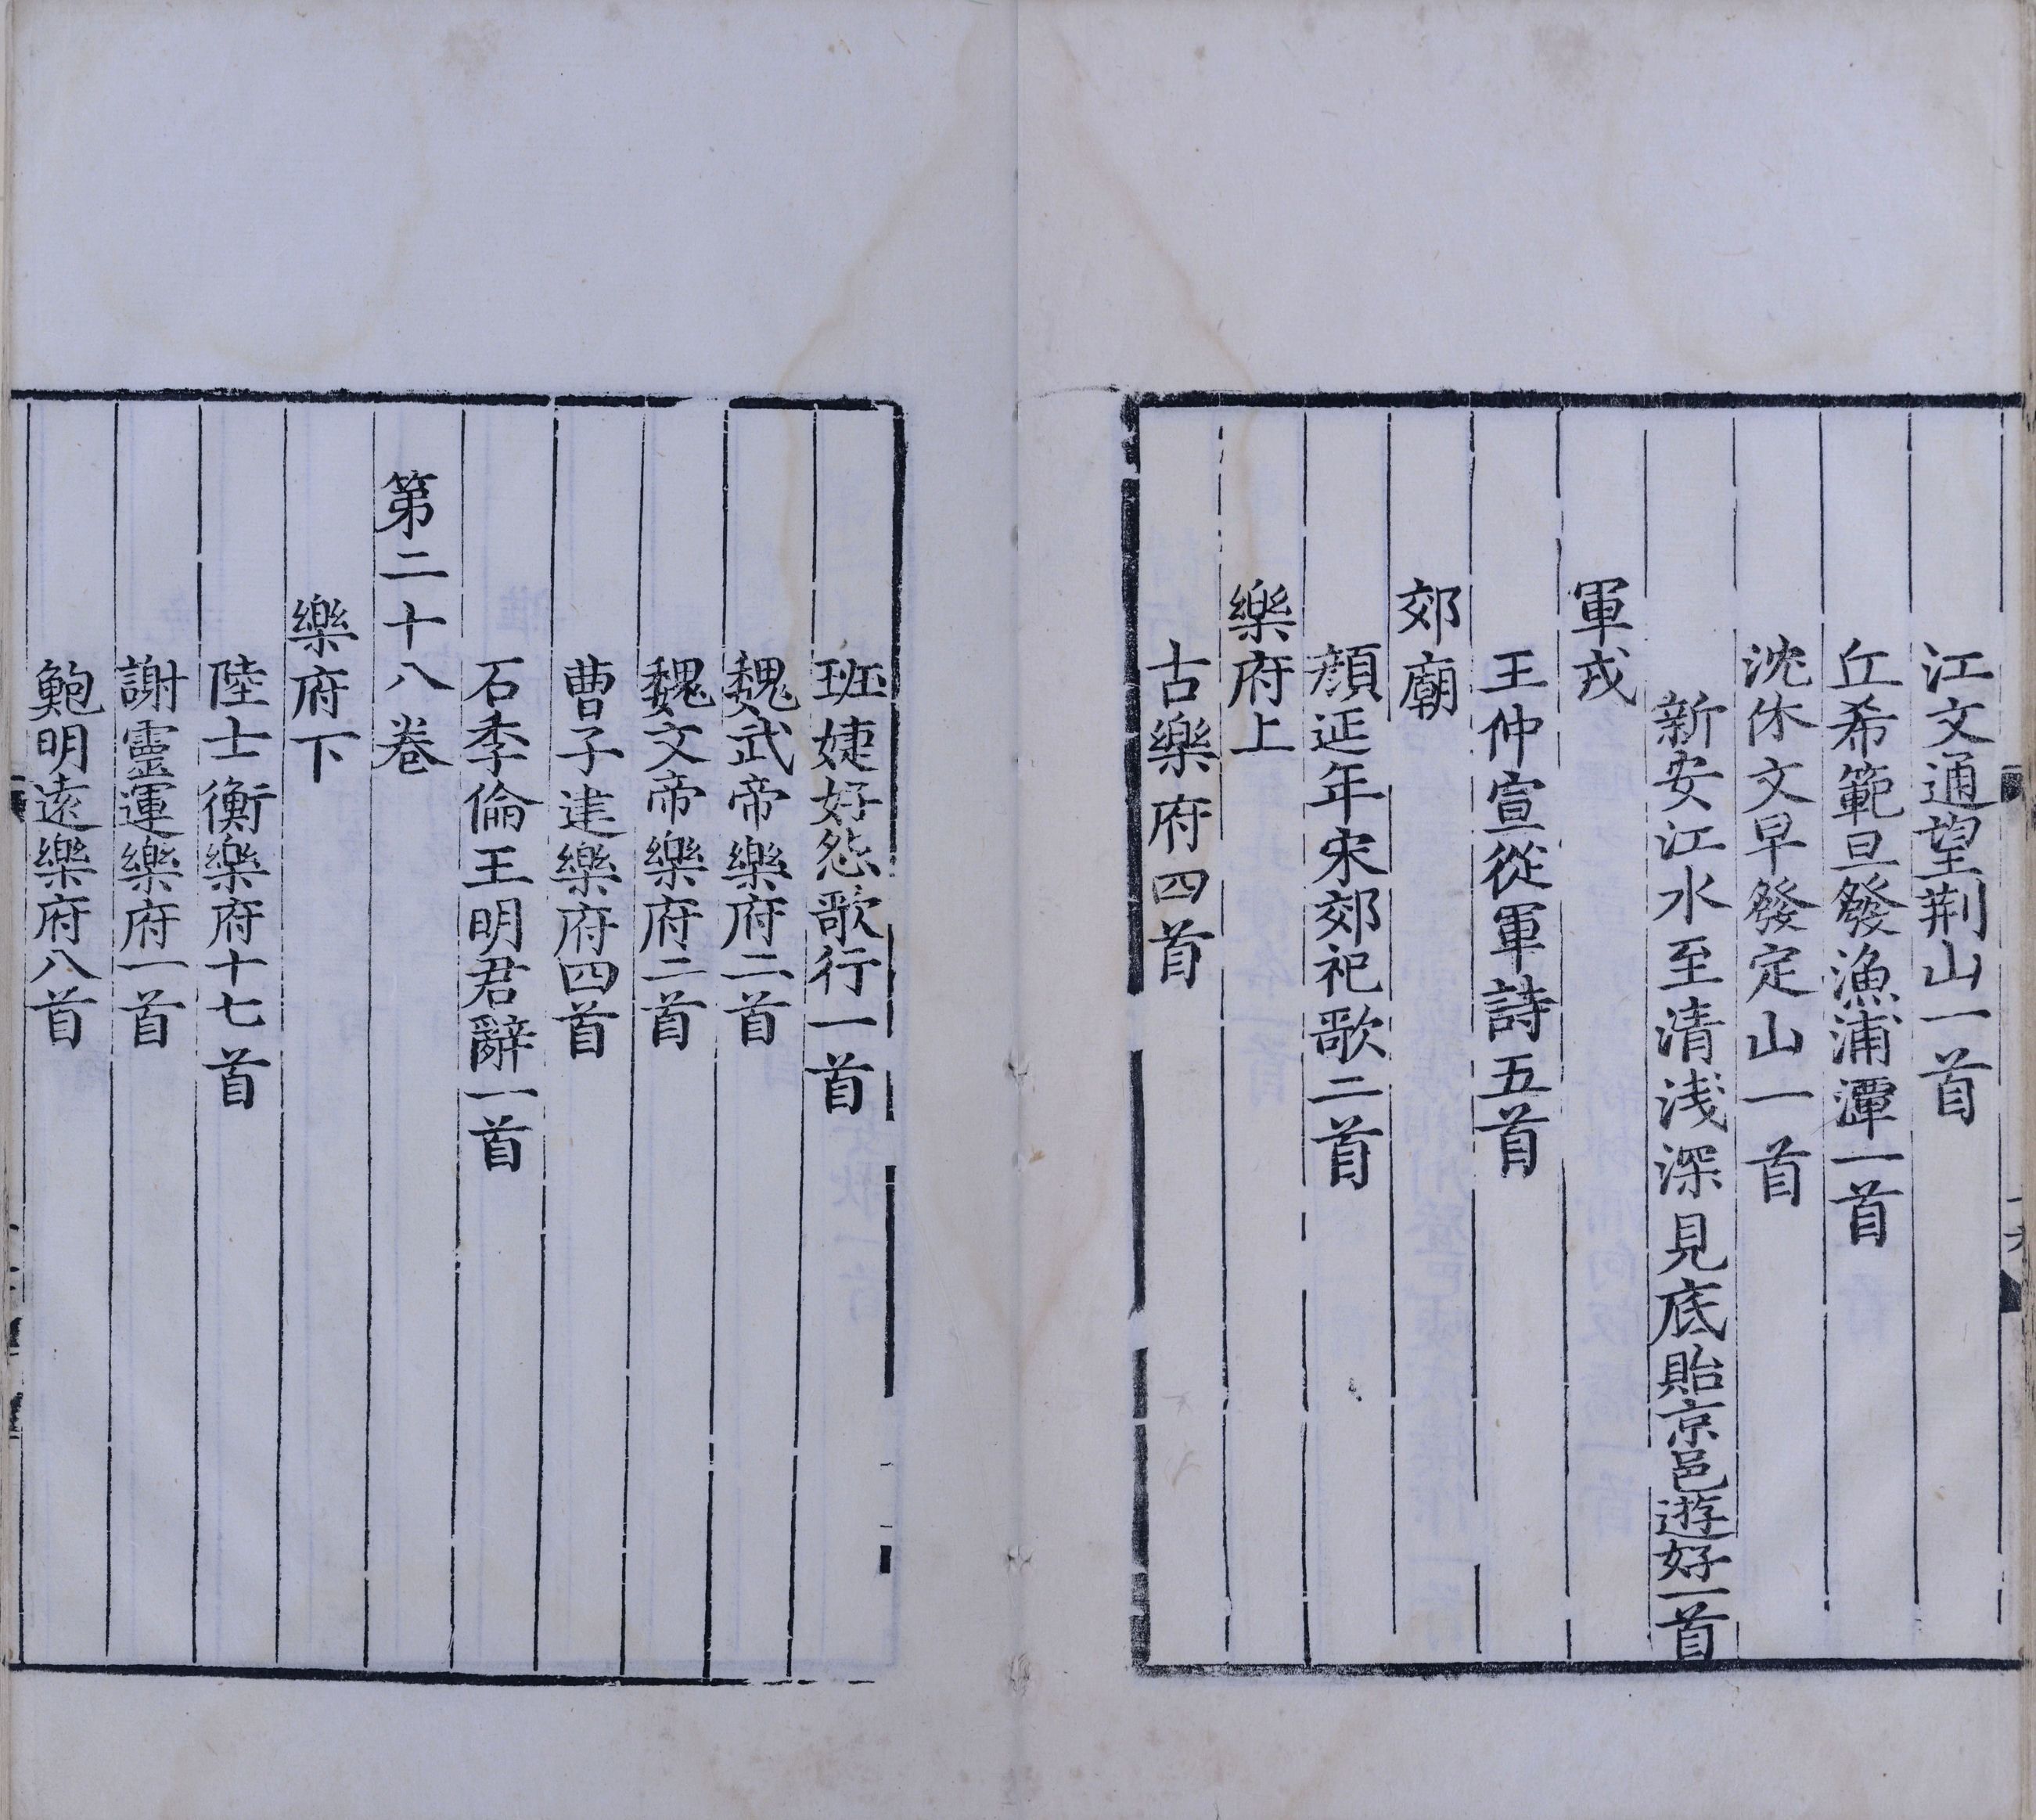 江文通望荆山一首
丘希範旦發漁浦潭一首
沈休文早發定山一首
新安江水至清浅深見底貽京邑遊好一首
軍戎
王仲宣從軍詩五首
郊廟
顔延年宋郊祀歌二首
樂府上
古樂府四首
班婕妤怨歌行一首
魏武帝樂府二首
魏文帝樂府二首
曹子建樂府四首
石季倫王明君辭一首
第二十八卷
樂府下
陸士衡樂府十七首
謝靈運樂府一首
鮑明遠樂府八首